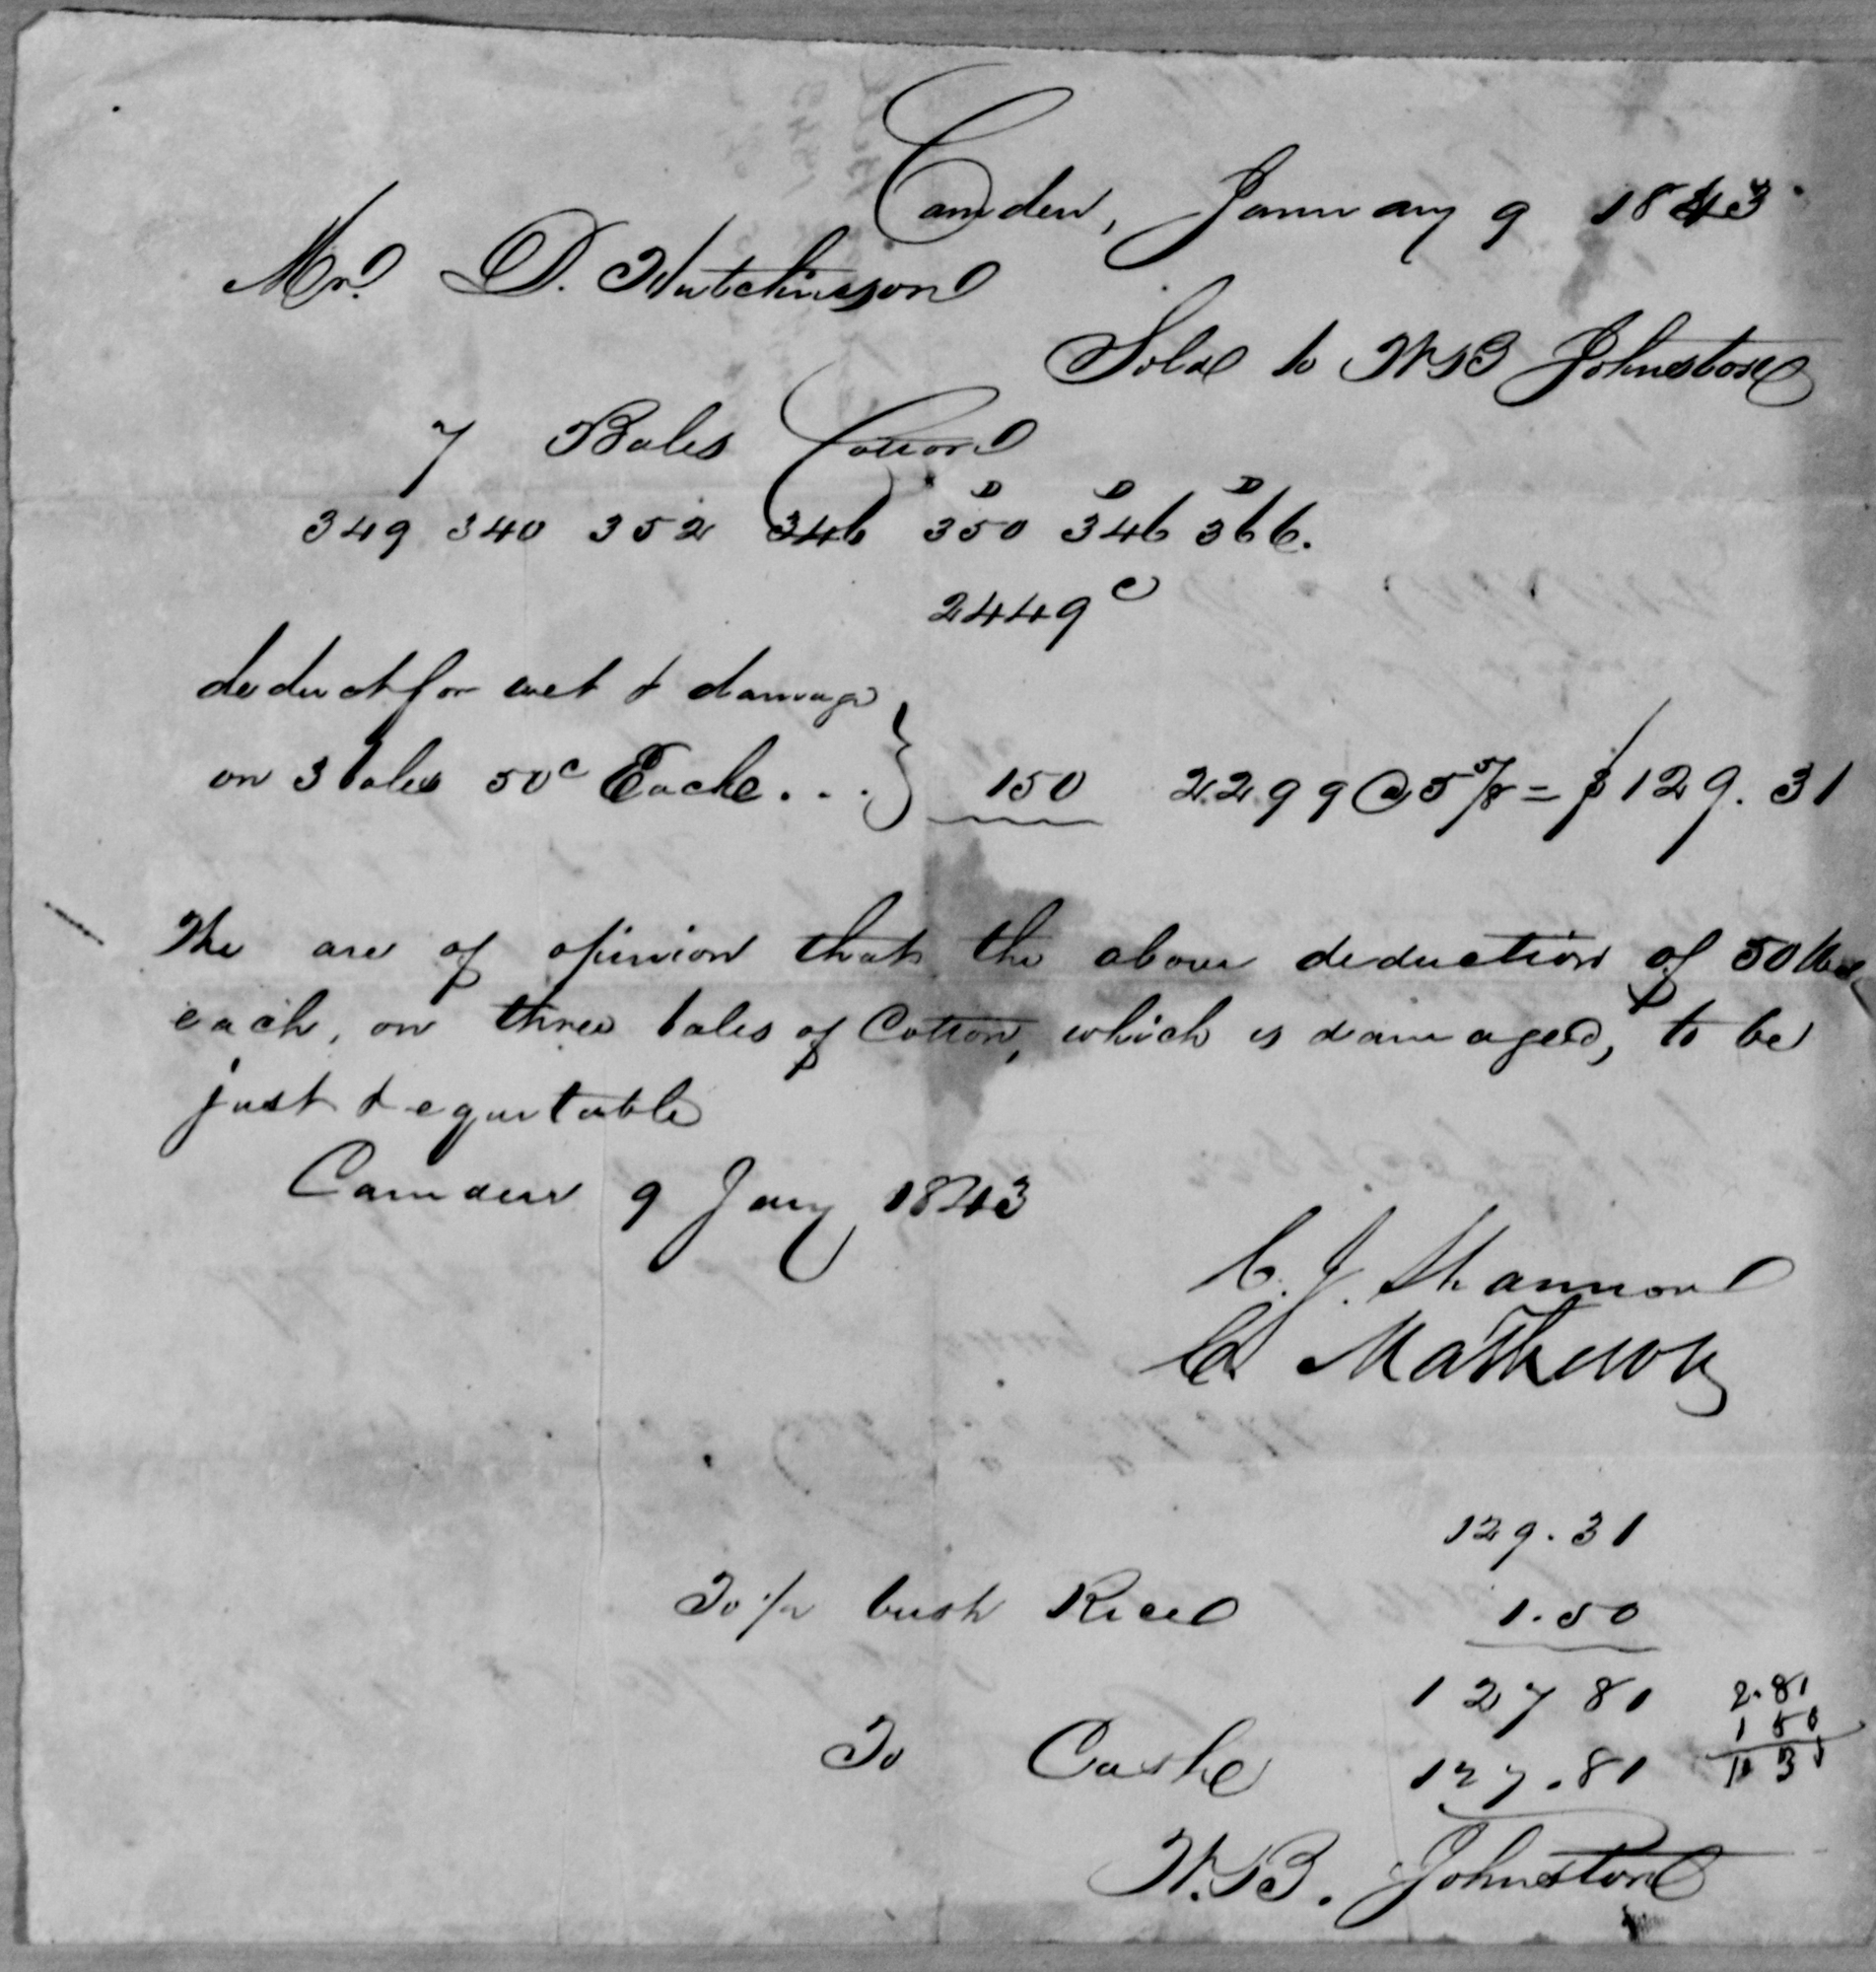 Camden, January 9 1843
Mr. D. Hutchinson
Sold to W B Johnston
7 Bales Cotton
D D D
349 340 352 346 350 346 366.
2449 c
deduct for wet & damage
on 3 bales 50 c Each . . . } 150 2299 @ 5 5/8 = $129.31
We are of opinion that the above deduction of 50 lbs
each, on three bales of Cotton, which is damaged, to be
just & equitable
Camden 9 Jany 1843
C. J. Shannon
C Mathews
129.31
To 1/2 bush Rice 1.50
127 81 2.81
1 50
To Cash 127.81 1 31
W. B. Johnston